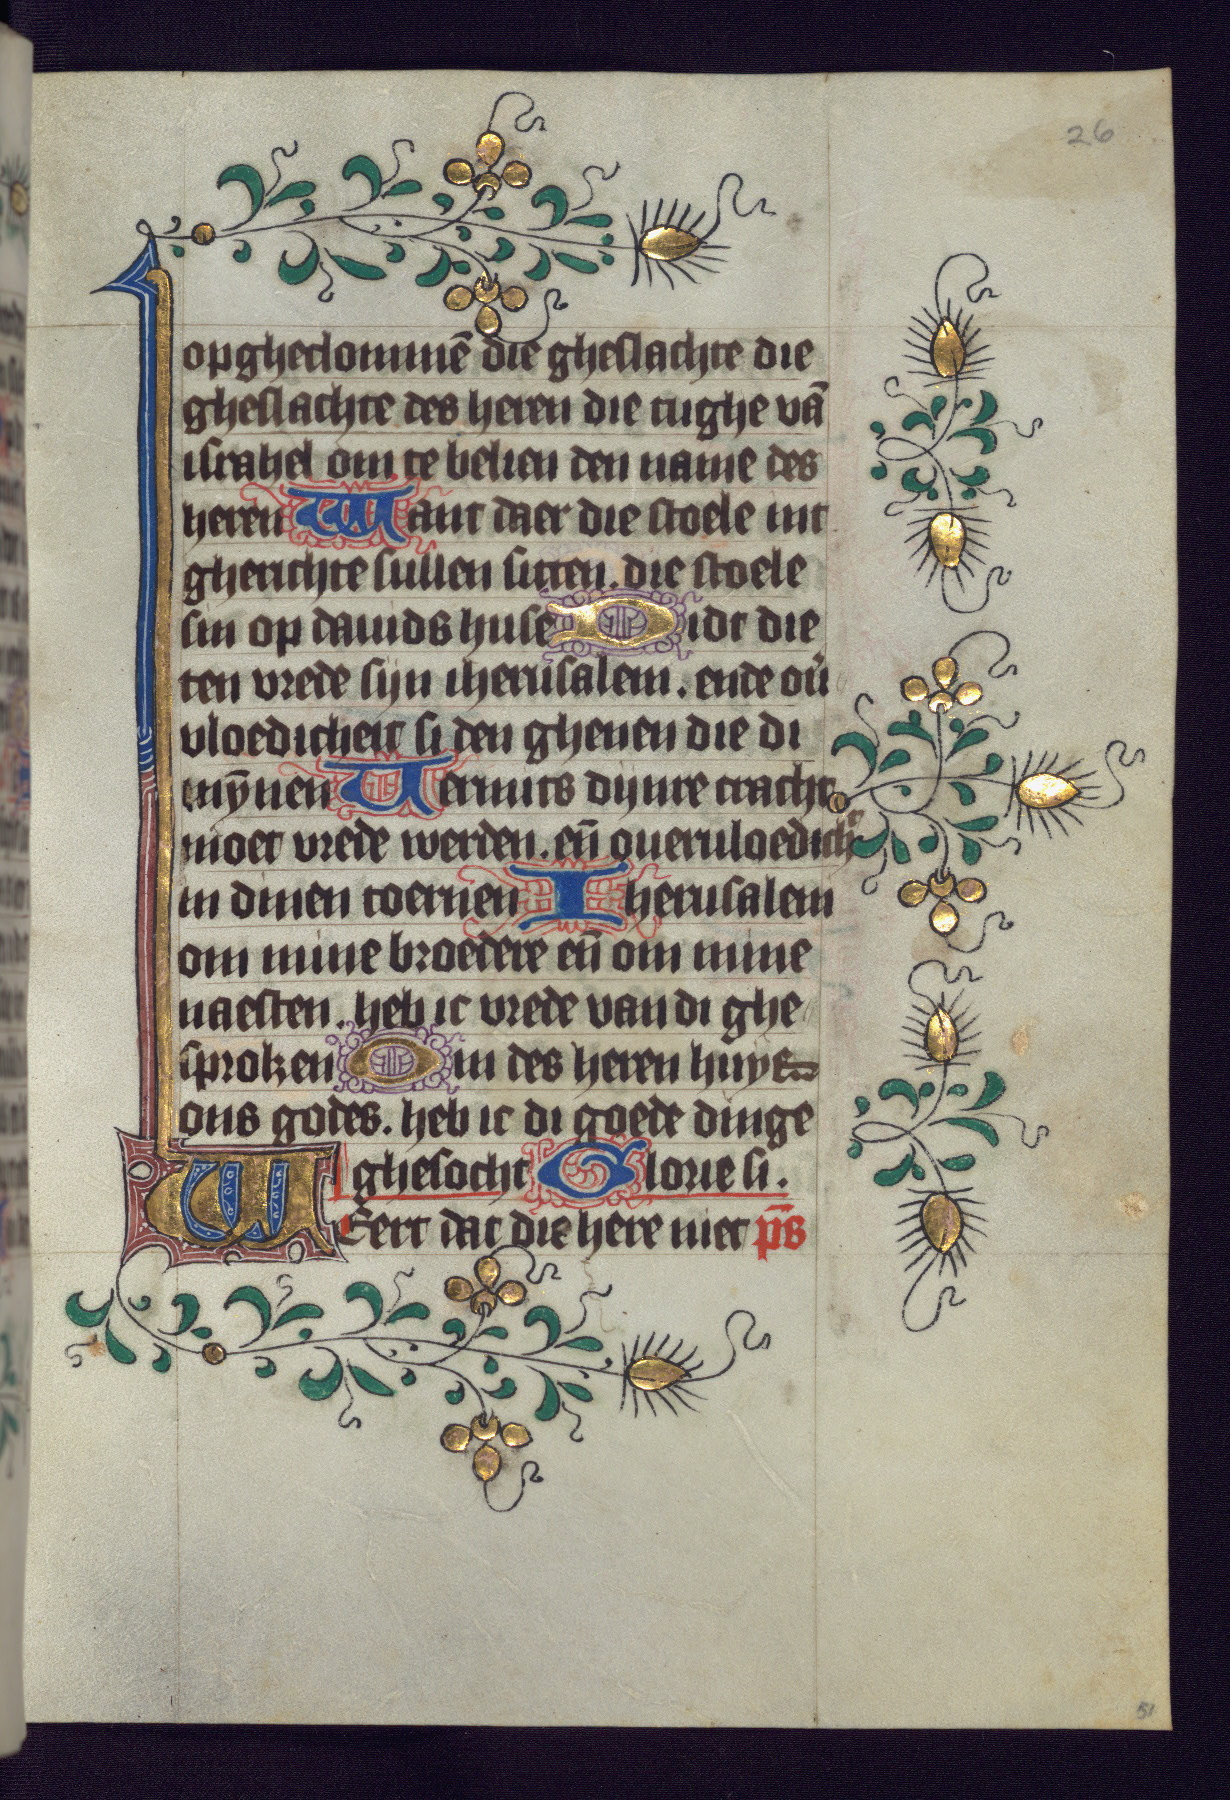 26
opgheclommē die gheslachte die
gheslachte des heren die tughe vā
israhel om te belien den name des
heren Want daer die stoele int
gherichte sullen sitten. die stoele
sin op dauids huse Bidt die
ten vrede sijn iherusalem. ende ou̇
vloedicheit si den ghenen die di
mȳnen Uermits dijnre cracht
moet vrede werden. en̄ oueruloedichᵗ
in dinen toernen Iherusalem
om mine broedere en̄ om mine
naesten. heb ic vrede van di ghe
sproken Om des heren huys
ons godes. heb ic di goede dinge
ghesocht Glorie si.
WEert dat die here niet p̄s
51